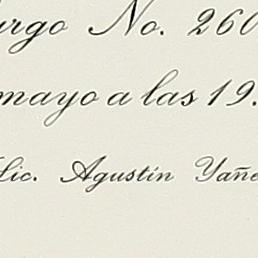 urgo No. 260
mayo a las 19.
Lic. Agustín Yañe